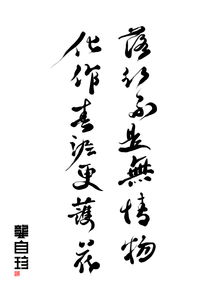 落紅不是無情物
化作春泥更護花
龔自珍